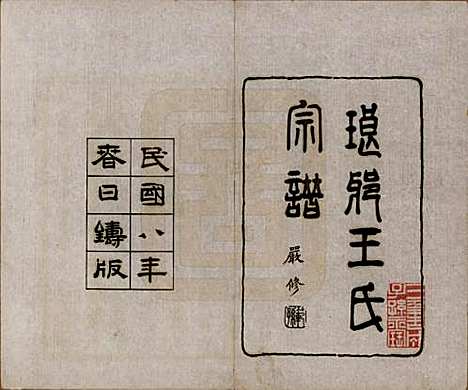 琅邪王氏
宗譜
嚴修
民國八年
春日鑄版